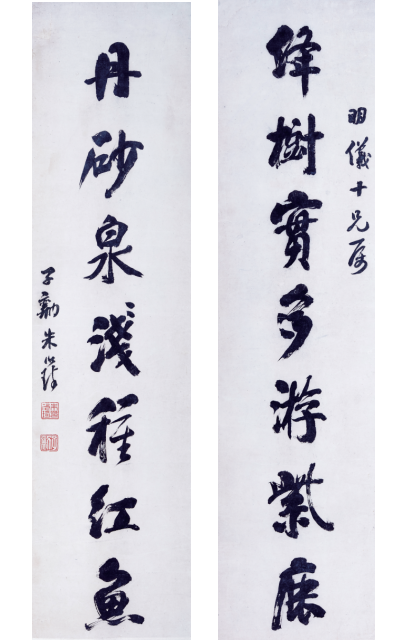 明儀十兄属
絳樹實多游紫鹿
丹砂泉淺種紅魚
子勷朱